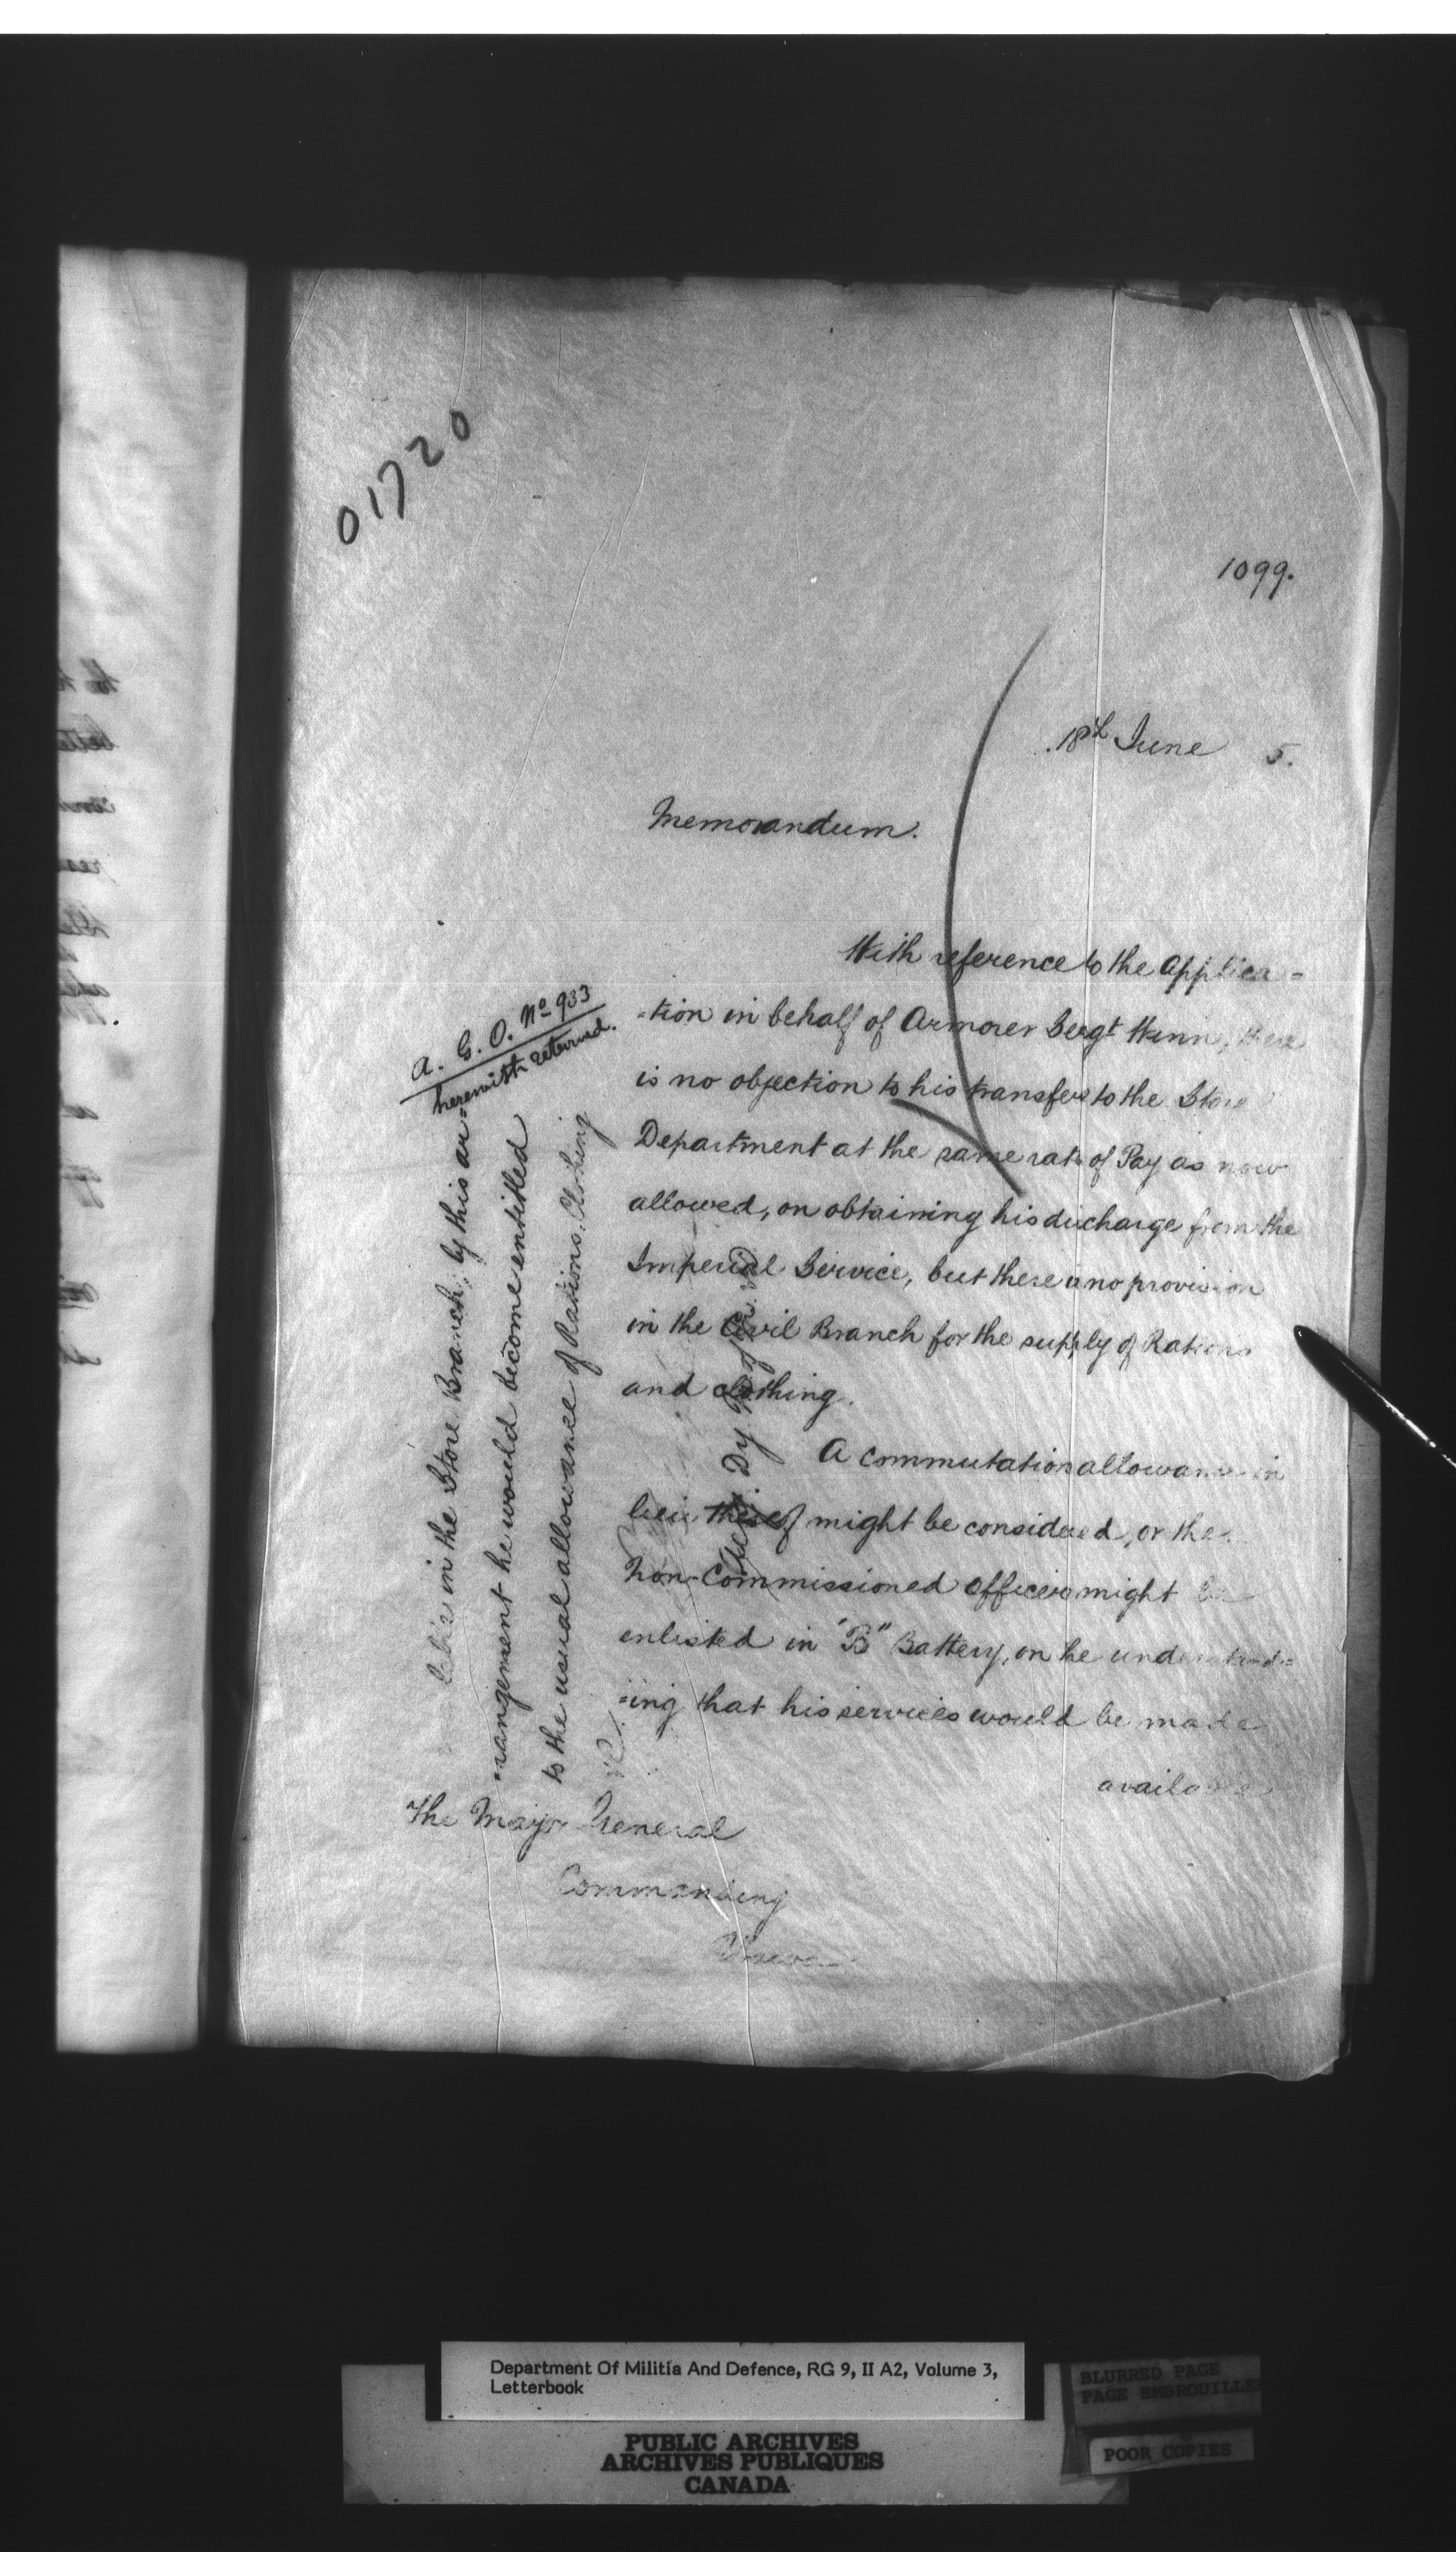 01720
1099.
18th June 5.
Memorandum.
With reference to the applica=
=tion in behalf of Armorer Sergt Winn, there
is no objection to his transfer to the Store
Department at the same rate of Pay as now
allowed, on obtaining his discharge from the
Imperial Service, but there is no provision
in the Civil Branch for the supply of Rations
and clothing.
A commutation allowance in
lieu thereof might be considered, or the
Non-Commissioned Officer might be
enlisted in "B" Battery, on he understand=
=ing that his services would be made
available
A. G. O. No 933
herewith returned.
in the Store Branch; by this ar=
=rangement he would become entitled
to the usual allowance of Rations, Clothing
&c.
Dy
The Major General
Commanding
Ottawa
Department Of Militia And Defence, RG 9, II A2, Volume 3,
Letterbook
PUBLIC ARCHIVES
ARCHIVES PUBLIQUES
CANADA
BLURRED PAGE
PAGE EMBROUILLEE
POOR COPIES